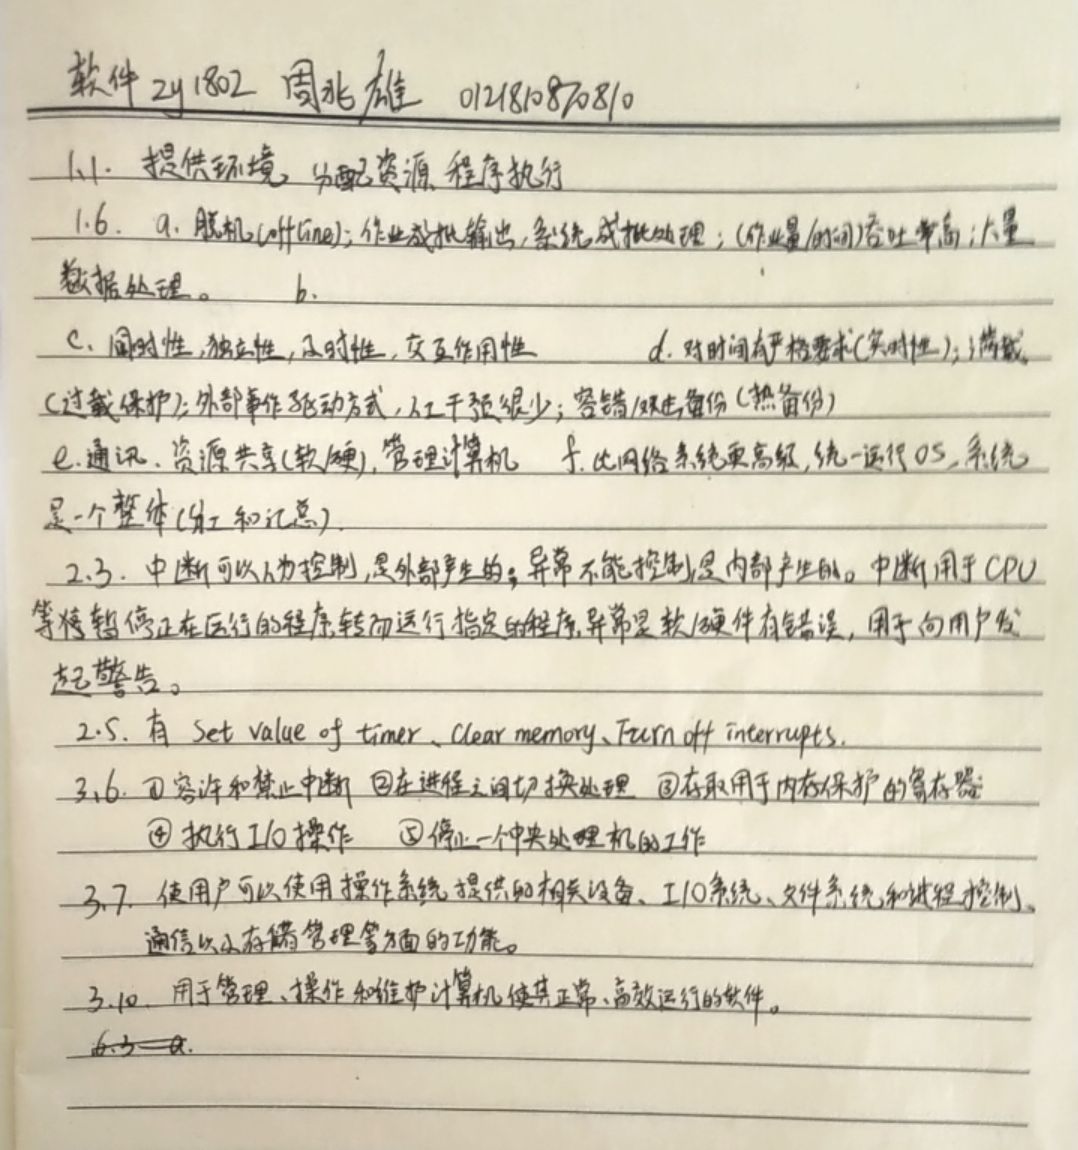 软件zy1802 周兆雄 0121810870810
1.1. 提供环境, 分配资源, 程序执行
1.6. a. 脱机(offline); 作业成批输出, 系统成批处理; (作业量/时间)吞吐率高; 大量
数据处理。 b.
c. 同时性, 独立性, 及时性, 交互作用性 d. 对时间有严格要求(实时性);
(过载保护); 外部事件驱动方式, 人工干预很少; 容错/双击备份(热备份)
e. 通讯、资源共享(软/硬), 管理计算机 f. 比网络系统更高级, 统一运行OS, 系统
是一个整体(分工和汇总).
2.3. 中断可以人为控制, 是外部产生的; 异常不能控制, 是内部产生的。中断用于CPU
等将暂停正在运行的程序, 转而运行指定的程序, 异常是软/硬件有错误, 用于向用户发
起警告。
2.5. 有 Set value of timer、Clear memory、Turn off interrupts.
3.6. ①容许和禁止中断 ②在进程之间切换处理 ③存取用于内存保护的寄存器
④执行I/O操作 ⑤停止一个中央处理机的工作
3.7. 使用户可以使用操作系统提供的相关设备、I/O系统、文件系统和进程控制、
通信以及存储管理等方面的功能。
3.10. 用于管理、操作和维护计算机使其正常、高效运行的软件。
6.3 a.